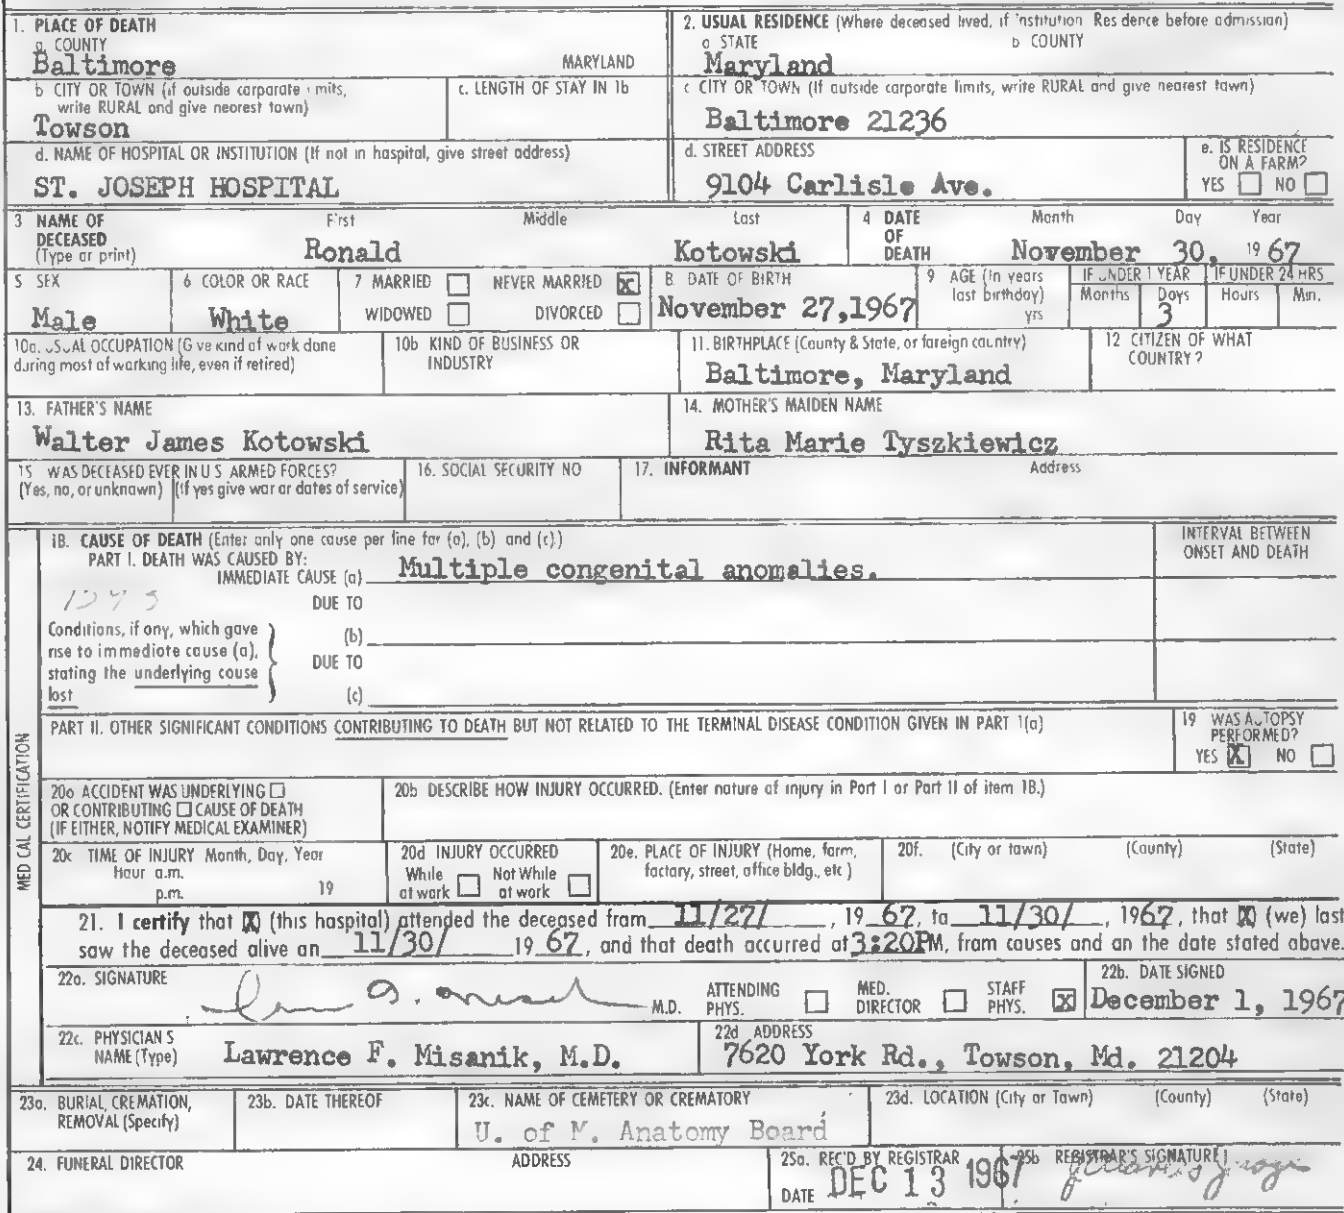 1. PLACE OF DEATH
a. COUNTY
Baltimore MARYLAND
2. USUAL RESIDENCE (Where deceased lived, if institution Residence before admission)
a STATE b COUNTY
Maryland
b CITY OR TOWN (if outside corporate limits, write RURAL and give nearest town)
Towson
c. LENGTH OF STAY IN 1b
c CITY OR TOWN (If outside corporate limits, write RURAL and give nearest town)
Baltimore 21236
d. NAME OF HOSPITAL OR INSTITUTION (If not in hospital, give street address)
ST. JOSEPH HOSPITAL
d. STREET ADDRESS
9104 Carlisle Ave.
e. IS RESIDENCE ON A FARM?
YES NO
3 NAME OF DECEASED (Type or print)
First Middle Last
Ronald Kotowski
4 DATE OF DEATH
Month Day Year
November 30, 1967
5 SEX
Male
6 COLOR OR RACE
White
7 MARRIED NEVER MARRIED X
WIDOWED DIVORCED
8. DATE OF BIRTH
November 27,1967
9 AGE (In years last birthday) yrs
IF UNDER 1 YEAR
Months Days
3
IF UNDER 24 HRS
Hours Min.
10a. USUAL OCCUPATION (Give kind of work done during most of working life, even if retired)
10b KIND OF BUSINESS OR INDUSTRY
11. BIRTHPLACE (County & State, or foreign country)
Baltimore, Maryland
12 CITIZEN OF WHAT COUNTRY?
13. FATHER'S NAME
Walter James Kotowski
14. MOTHER'S MAIDEN NAME
Rita Marie Tyszkiewicz
15 WAS DECEASED EVER IN U S ARMED FORCES?
(Yes, no, or unknown) (If yes give war or dates of service)
16. SOCIAL SECURITY NO
17. INFORMANT Address
MEDICAL CERTIFICATION
18. CAUSE OF DEATH (Enter only one cause per line for (a), (b) and (c).)
PART I. DEATH WAS CAUSED BY:
IMMEDIATE CAUSE (a) Multiple congenital anomalies.
INTERVAL BETWEEN ONSET AND DEATH
DUE TO
Conditions, if any, which gave rise to immediate cause (a), stating the underlying cause last
(b)
DUE TO
(c)
PART II. OTHER SIGNIFICANT CONDITIONS CONTRIBUTING TO DEATH BUT NOT RELATED TO THE TERMINAL DISEASE CONDITION GIVEN IN PART 1(a)
19 WAS AUTOPSY PERFORMED?
YES X NO
20a ACCIDENT WAS UNDERLYING
OR CONTRIBUTING CAUSE OF DEATH
(IF EITHER, NOTIFY MEDICAL EXAMINER)
20b DESCRIBE HOW INJURY OCCURRED. (Enter nature of injury in Part I or Part II of item 18.)
20c TIME OF INJURY Month, Day, Year
Hour a.m.
p.m. 19
20d INJURY OCCURRED
While at work Not While at work
20e. PLACE OF INJURY (Home, farm, factory, street, office bldg., etc)
20f. (City or town) (County) (State)
21. I certify that X (this hospital) attended the deceased from 11/27/, 1967, to 11/30/, 1967, that X (we) last
saw the deceased alive on 11/30/ 1967, and that death occurred at 3:20PM, from causes and on the date stated above.
22a. SIGNATURE
M.D. ATTENDING PHYS. MED. DIRECTOR STAFF PHYS. X
22b. DATE SIGNED
December 1, 1967
22c. PHYSICIAN'S NAME (Type) Lawrence F. Misanik, M.D.
22d ADDRESS
7620 York Rd., Towson, Md. 21204
23a. BURIAL, CREMATION, REMOVAL (Specify)
23b. DATE THEREOF
23c. NAME OF CEMETERY OR CREMATORY
U. of M. Anatomy Board
23d. LOCATION (City or Town) (County) (State)
24. FUNERAL DIRECTOR ADDRESS
25a. REC'D BY REGISTRAR
DATE DEC 13 1967
25b REGISTRAR'S SIGNATURE